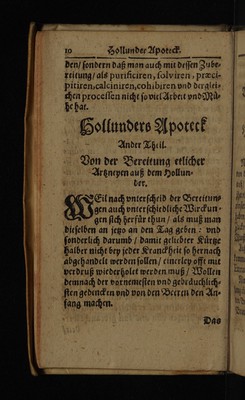 10 Hollunder Apoteck.
den/ sondern daß man auch mit dessen Zube-
reitung/ als purificiren, solviren, præci-
pitiren, calciniren, cohibiren und dergleі-
chen processen nicht so viel Arbeit vnd Mü-
he hat.
Hollunders Apoteck
Ander Theil.
Von der Bereitung etlicher
Artzneyen auß dem Hollun-
der.
WEil nach vnterscheid der Bereitun-
gen auch vnterschiedliche Wirckun-
gen sich herfür thun/ als muß man
dieselben an jetzo an den Tag geben: vnd
sonderlich darumb/ damit geliebter Kürtze
halber nicht bey jeder Kranckheit so hernach
abgehandelt werden sollen/ einerley offt mit
verdruß wiederholet werden muß/ Wollen
demnach der vornemesten vnd gebräuchlich-
sten gedencken vnd von den Beeren den An-
fang machen.
Das